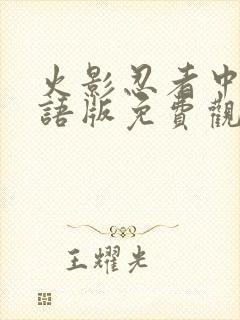 火影忍者中
語版免費觀
王耀光